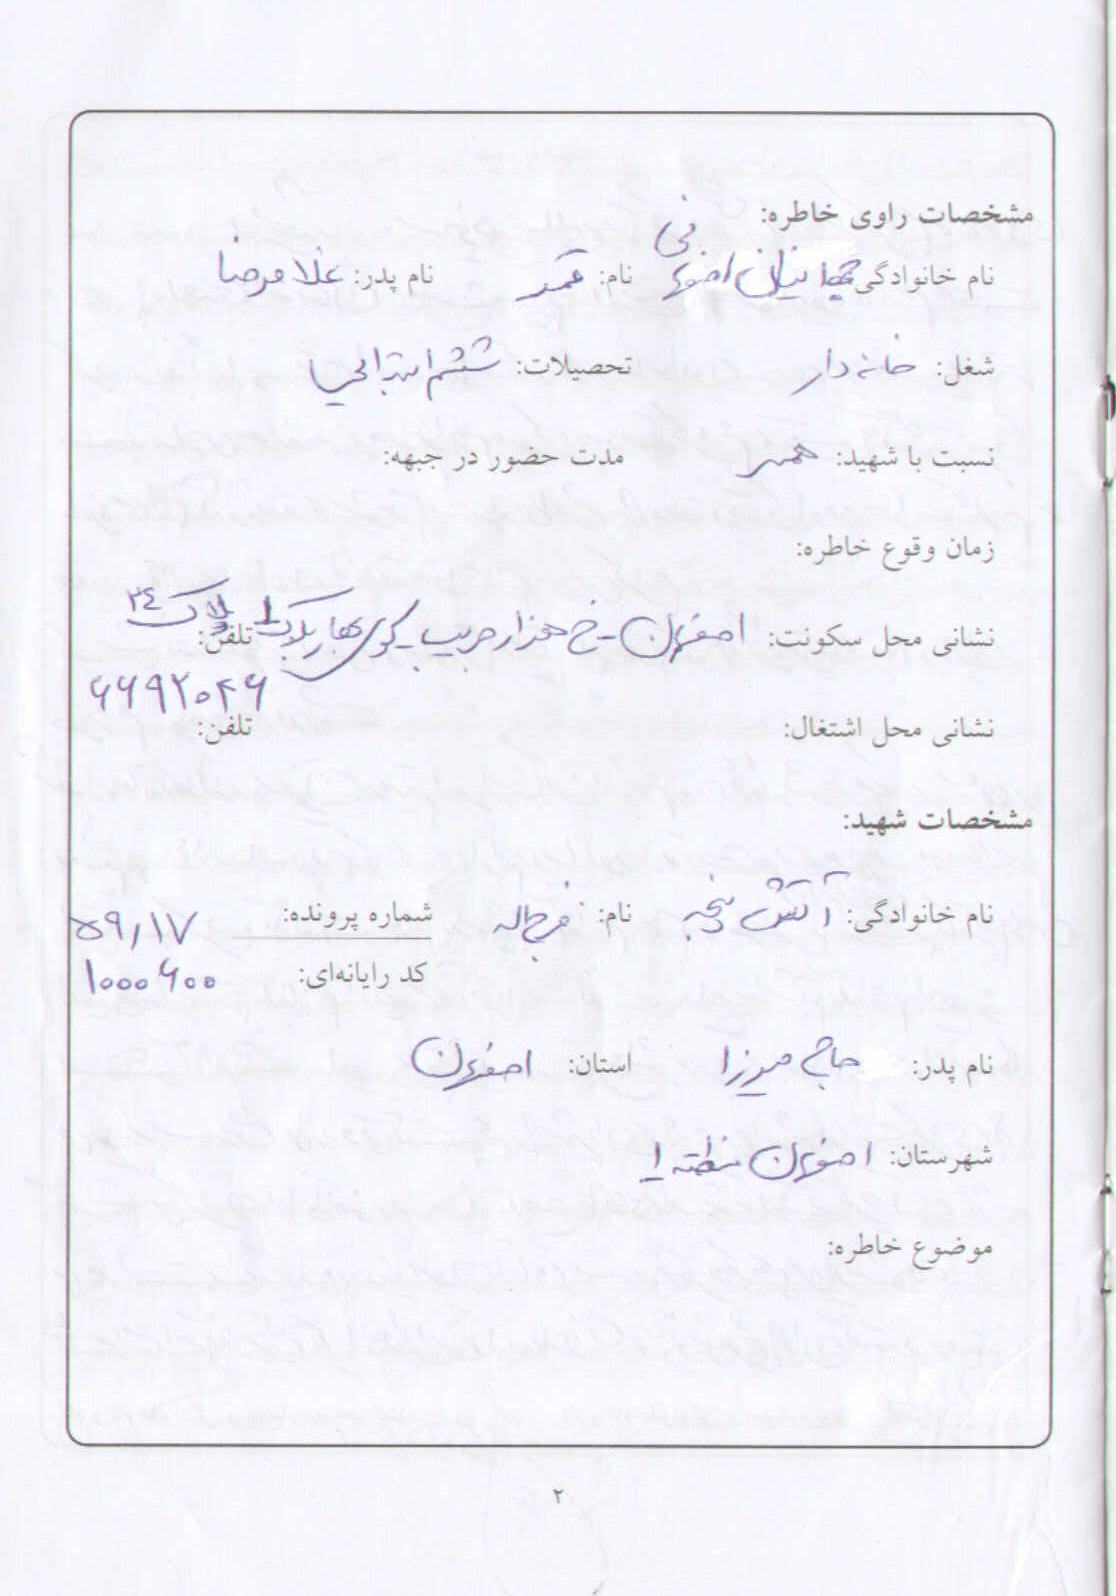 مشخصات راوی خاطره:
نام خانوادگی: اصفهانی نام: قمر نام پدر: غلامرضا
شغل: خانه دار تحصیلات: ششم ابتدایی
نسبت با شهید: همسر مدت حضور در جبهه:
زمان وقوع خاطره:
نشانی محل سکونت: اصفهان - خ هزار جریب - کوی بهار بلاک ۱ پلاک ۳۴ تلفن:
۶۶۹۲۰۴۶
نشانی محل اشتغال: تلفن:
مشخصات شهید:
نام خانوادگی: آتش پنجه نام: فرج اله شماره پرونده: ۵۹٫۱۷
کد رایانه‌ای: ۱۰۰۰۶۰۰
نام پدر: حاجی میرزا استان: اصفهان
شهرستان: اصفهان منطقه ۱
موضوع خاطره:
۲